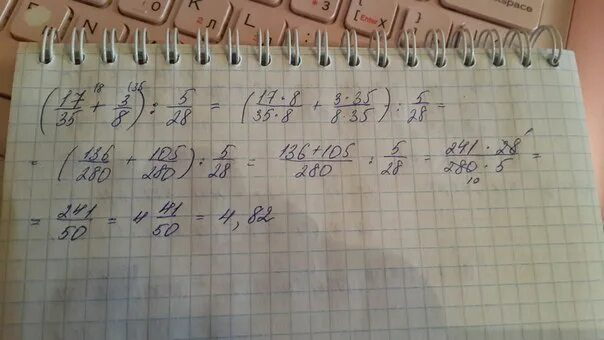 З
[ Enter X
space
(17/35 + 3/8) : 5/28 = (17·8/35·8 + 3·35/8·35) : 5/28 =
= (136/280 + 105/280) : 5/28 = 136+105/280 : 5/28 = 241·28/280·5 =
= 241/50 = 4 41/50 = 4,82